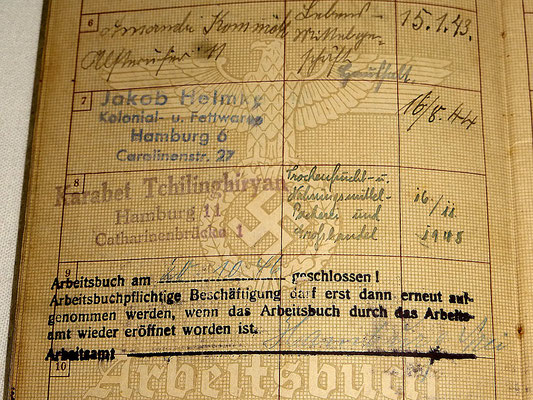 6
Lebens-
mittelge-
schäft
15.1.43.
7
Jakob Helmke
Kolonial- u. Fettwaren
Hamburg 6
Carolinenstr. 27
16/8.44
8
Karabet Tchilinghiryan
Hamburg 11
Catharinenbrücke 1
Trockenfrücht- u.
Nahrungsmittel-
Packerei und
Großhandel
16/11
1945
9
Arbeitsbuch am geschlossen!
Arbeitsbuchpflichtige Beschäftigung darf erst dann erneut auf-
genommen werden, wenn das Arbeitsbuch durch das Arbeits-
amt wieder eröffnet worden ist.
Arbeitsamt
10
Arbeitsbuch